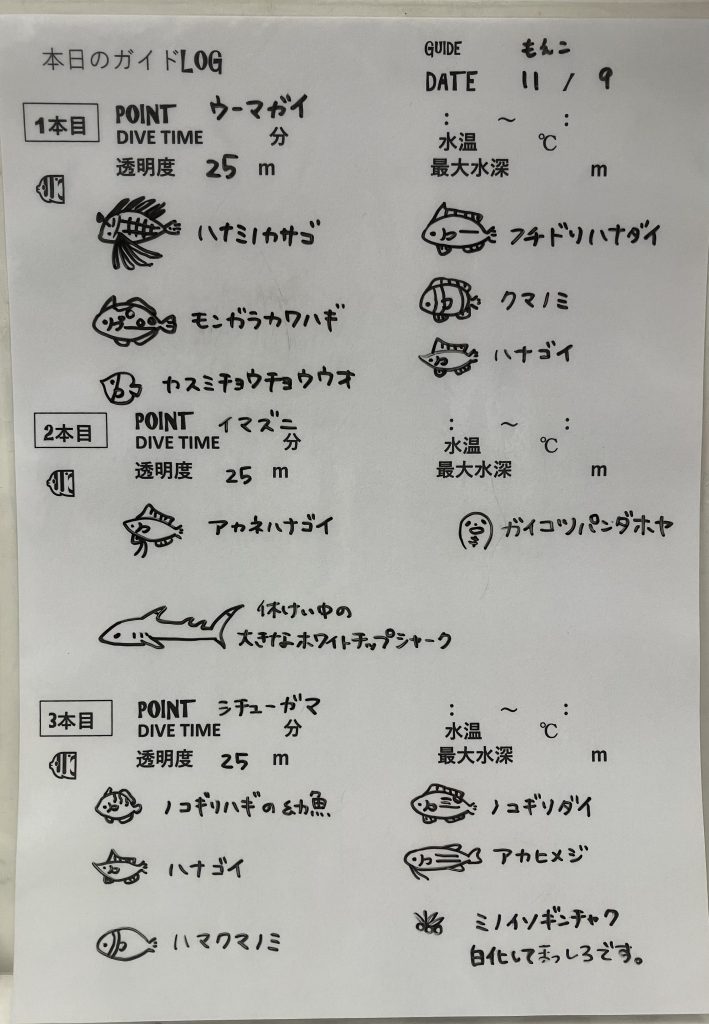 本日のガイドLOG
GUIDE もんこ
DATE 11 / 9
1本目 POINT ウーマガイ
: ～ :
DIVE TIME 分
水温 ℃
透明度 25 m
最大水深 m
ハナミノカサゴ
フチドリハナダイ
クマノミ
モンガラカワハギ
ハナゴイ
カスミチョウチョウウオ
2本目 POINT イマズニ
: ～ :
DIVE TIME 分
水温 ℃
透明度 25 m
最大水深 m
アカネハナゴイ
ガイコツパンダホヤ
休けい中の
大きなホワイトチップシャーク
3本目 POINT シチューガマ
: ～ :
DIVE TIME 分
水温 ℃
透明度 25 m
最大水深 m
ノコギリハギの幼魚
ノコギリダイ
ハナゴイ
アカヒメジ
ハマクマノミ
ミノイソギンチャク
白化して真っしろです。